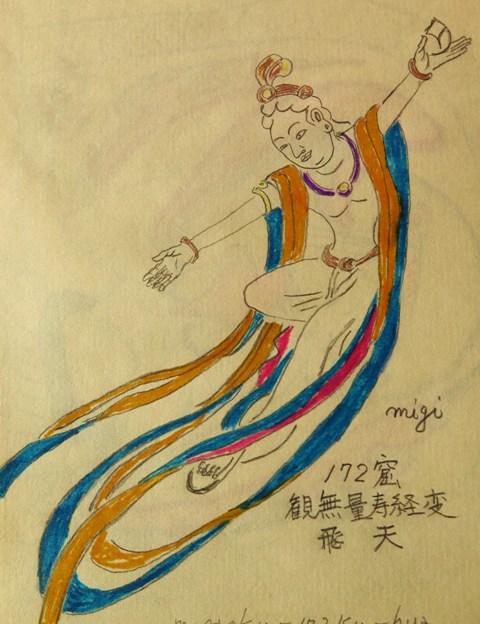 migi
172窟
観無量寿経変
飛天